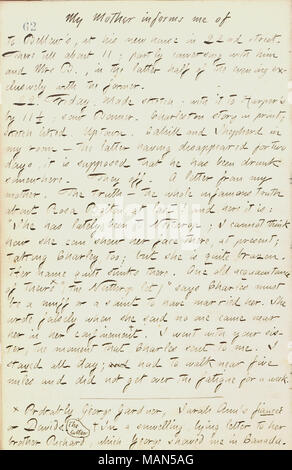 My Mother informs me of
62
to Bellew's, at his new house in 22nd street.
Cares till about 11; partly conversing with him
and Mrs B., in the latter half of the evening ex-
clusively with the former.
12. Friday. Made sketch; with it to Harper's
by 11½; saw Bonner. Charleston story in print;
sketch taked. Uptown. Cahill and Shepherd in
my room — the latter having disappeared for two
days, it is supposed that he has been drunk
somewhere. They off. A letter from my
mother. The truth — the whole infamous truth
about Rosa at last; and here it is:
"She has lately been at Neithrop. I cannot think
how she can show her face there, at present;
taking Charley too; but she is quite brazen.
Her name quite stinks there. One old acquaintance
of theirs (the Neithrop lot) says Charles must
be a muff or a saint to have married her. She
wrote falsely when she said no one came near
her in her confinement. I went with your sis-
ter, the moment that Charles sent to me. I
stayed all day; and had to walk near five
miles and did not get over the fatigue for a week.
x Probably George Gardner, Sarah Ann's fiancée
or David's (the latter) † In a snivelling, lying letter to her
brother Richard, which George showed me in Canada.
alamy
MAN5AG